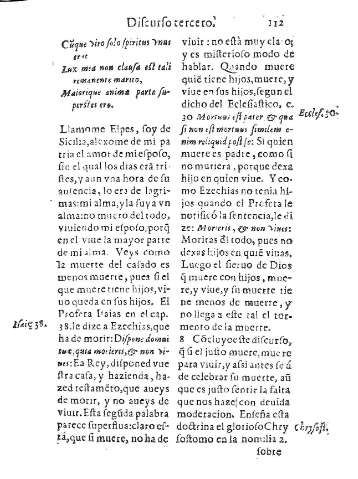 Discurso tercero. 112
Cũque viro solo spiritus unas
erit
Lux mea non clausa est tali
remanente marito,
Maiorique animæ parte su-
perstes ero.
Llamome Elpes, soy de
Sicilia, alexome de mi pa
tria el amor de mi esposo,
sin el qual los dias erã tris
tes, y aun vna hora de su
ausencia, lo era de lagri-
mas: mi alma, y la suya vn
alma: no muero del todo,
viuiendo mi esposo, porq̃
en el viue la mayor parte
de mi alma. Veys como
la muerte del casado es
menos muerte, pues si el
que muere tiene hijos, vi-
uo queda en sus hijos. El
Profeta Isaias en el cap.
Isaię 38.
38. le dize a Ezechias, que
ha de morir: Dispone domui
tuæ, quia morieris, & non vi-
ues: Ea Rey, disponed vue
stra casa, y hazienda, ha-
zed testamẽto, que aueys
de morir, y no aueys de
viuir. Esta segũda palabra
parece superflua: claro es-
tà, que si muere, no ha de
viuir: no està muy claro;
y es misterioso modo de
hablar. Quando muere
quiẽ tiene hijos, muere, y
viue en sus hijos, segun el
dicho del Eclesiastico, c.
Eccles. 30.
30 Mortuus est pater & qua
si non est mortuus similem e-
nim reliquid post se: Si quien
muere es padre, como si
no muriera, porque dexa
hijo en quien viue. Y co-
mo Ezechias no tenia hi-
jos quando el Profeta le
notificò la sentencia, le di
ze: Morieris, & non viues:
Moriras del todo, pues no
dexas hijos en quiẽ viuas,
Luego el sieruo de Dios
q̃ muere con hijos, mue-
re, y viue, y su muerte tie
ne menos de muerte, y
no llega a este tal el tor-
mento de la muerte.
8 Cõcluyo este discurso,
q̃ si el justo muere, muere
para viuir, y assi antes se à
de celebrar su muerte, aũ
que es justo sentir la falta
que nos haze: con deuida
moderacion. Enseña esta
doctrina el glorioso Chry
Chrysost.
sostomo en la homilia 2.
sobre